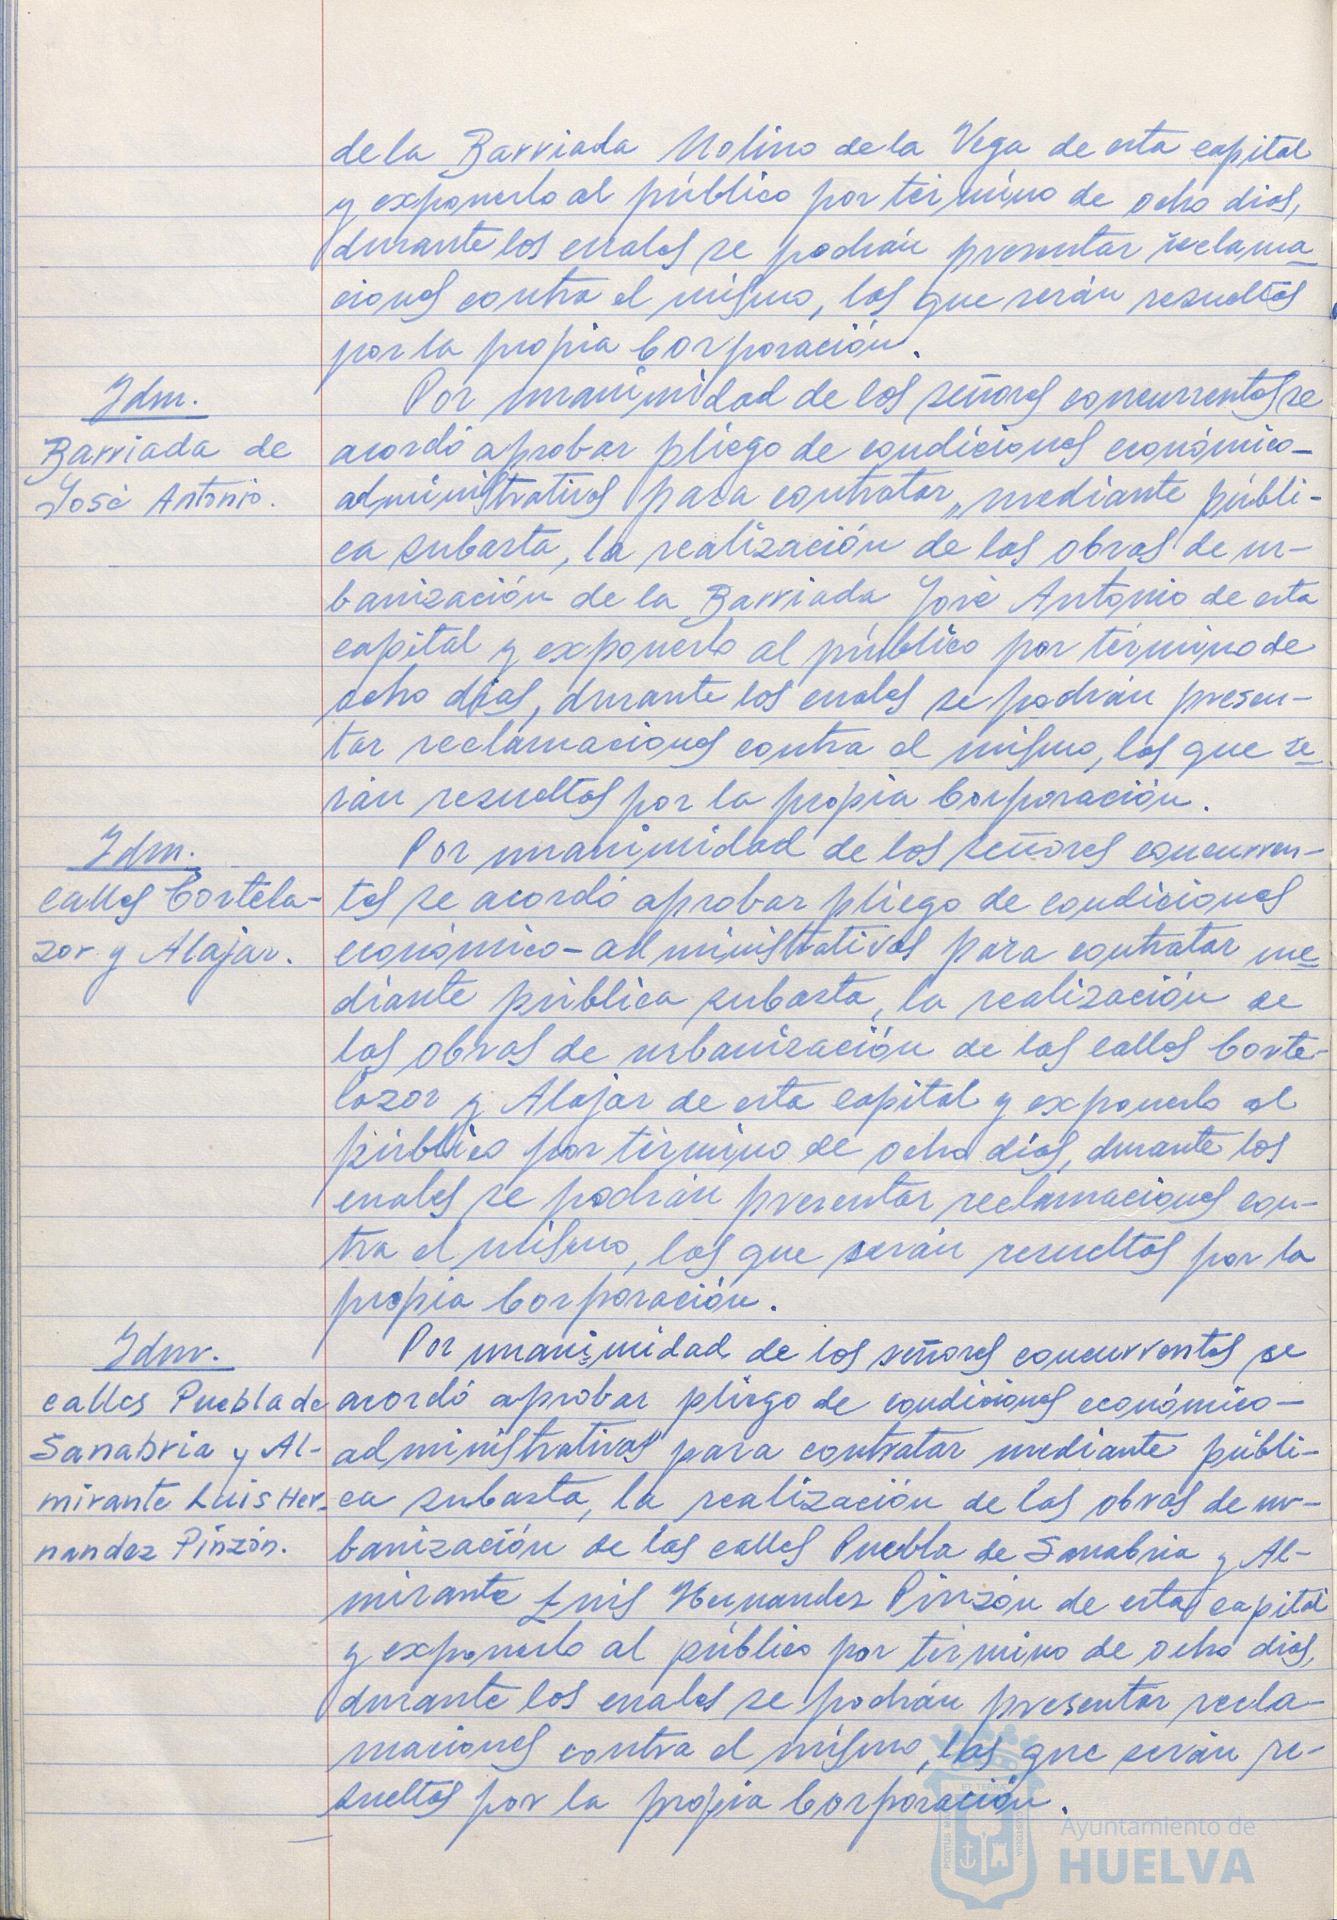 de la Barriada Molino de la Vega de esta capital
y exponerlo al público por término de ocho dias,
durante los cuales se podrán presentar reclama-
ciones contra el mismo, las que serán resueltas
por la propia Corporación.
Idm.
Barriada de
José Antonio.
Por unanimidad de los señores concurrentes se
acordó aprobar pliego de condiciones económico-
administrativas para contratar, mediante públi-
ca subasta, la realización de las obras de ur-
banización de la Barriada José Antonio de esta
capital y exponerlo al público por término de
ocho días, durante los cuales se podrán presen-
tar reclamaciones contra el mismo, las que se-
rán resueltas por la propia Corporación.
Idm.
calles Cortela-
zor y Alajar.
Por unanimidad de los señores concurren-
tes se acordó aprobar pliego de condiciones
económico-administrativas para contratar me-
diante pública subasta, la realización de
las obras de urbanización de las calles Corte-
lazor y Alajar de esta capital y exponerlo al
público por término de ocho días, durante los
cuales se podrán presentar reclamaciones con-
tra el mismo, las que serán resueltas por la
propia Corporación.
Idm.
calles Puebla de
Sanabria y Al-
mirante Luis Her-
nandez Pinzón.
Por unanimidad de los señores concurrentes se
acordó aprobar pliego de condiciones económico-
administrativas para contratar mediante públi-
ca subasta, la realización de las obras de ur-
banización de las calles Puebla de Sanabria y Al-
mirante Luis Hernandez Pinzón de esta capital
y exponerlo al público por término de ocho dias,
durante los cuales se podrán presentar recla-
maciones contra el mismo, las que serán re-
sueltas por la propia Corporación.
Ayuntamiento de
HUELVA